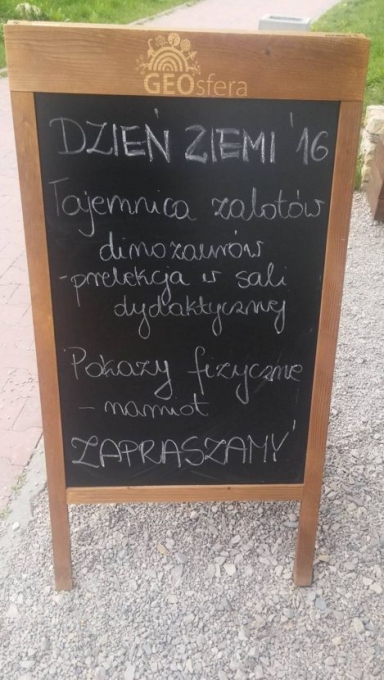 GEOsfera
DZIEŃ ZIEMI '16
Tajemnica zalotów
dinozaurów
- prelekcja w sali
dydaktycznej
Pokazy fizyczne
- namiot
ZAPRASZAMY